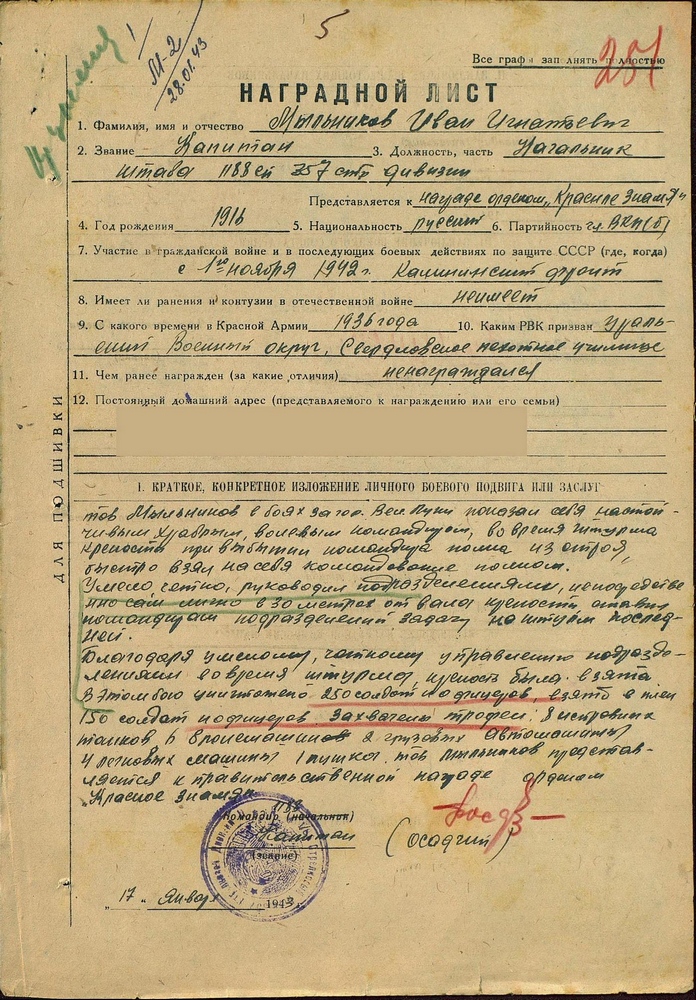 5
М-2
28.01.43
Все графы заполнять полностью
251
НАГРАДНОЙ ЛИСТ
1. Фамилия, имя и отчество Мыльников Иван Игнатьевич
2. Звание Капитан 3. Должность, часть Начальник
штаба 1188 сп 357 стр дивизии
Представляется к награде орденом „Красное Знамя"
4. Год рождения 1916 5. Национальность русский 6. Партийность чл. ВКП(б)
7. Участие в гражданской войне и в последующих боевых действиях по защите СССР (где, когда)
с 1го ноября 1942 г. Калининский фронт
8. Имеет ли ранения и контузии в отечественной войне неимеет
9. С какого времени в Красной Армии 1936 года 10. Каким РВК призван Ураль-
ский Военный округ, Свердловское пехотное училище
11. Чем ранее награжден (за какие отличия) ненаграждался
12. Постоянный домашний адрес (представляемого к награждению или его семьи)
ДЛЯ ПОДШИВКИ
1. КРАТКОЕ, КОНКРЕТНОЕ ИЗЛОЖЕНИЕ ЛИЧНОГО БОЕВОГО ПОДВИГА ИЛИ ЗАСЛУГ
тов Мыльников в боях за гор. Вел. Луки показал себя настой-
чивым храбрым, волевым командиром, во время штурма
крепости при выбытии командира полка из строя,
быстро взял на себя командование полком.
Умело четно, руководил подразделениями, непосредстве
нно сам лично в 30 метрах от вала крепости ставил
командирам подразделений задачу на штурм послед-
ней.
Благодаря умелому, четкому управлению подразде-
лениями во время штурма, крепость была взята
В этом бою уничтожено 250 солдат и офицеров, взято в плен
150 солдат и офицеров. Захвачены трофеи: 8 исправных
танков 6 бронемашин 2 грузовых автомашины
4 легковых машины 1 пушка. тов Мыльников представ-
ляется к правительственной награде орденом
„Красное Знамя"
Командир (начальник) 1188
Капитан
(звание)
(Осадчий)
„17" Января 1943